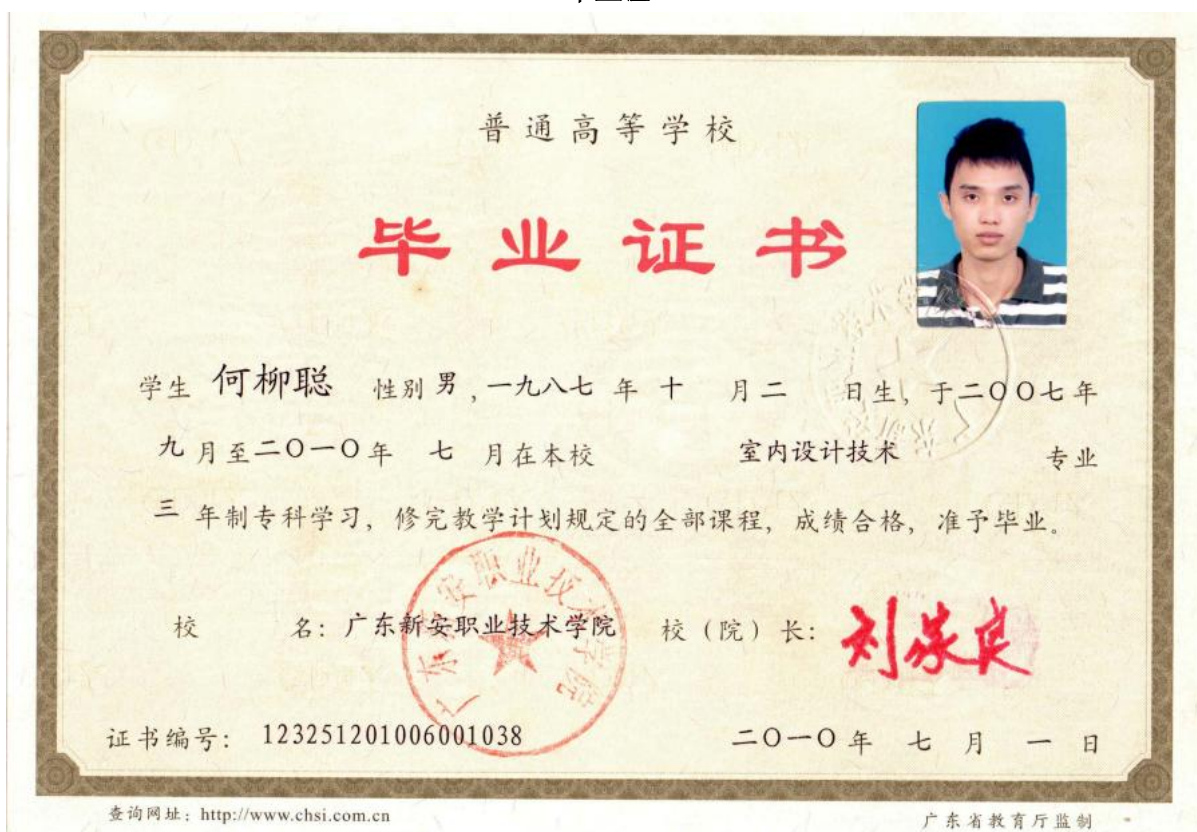 普通高等学校
毕业证书
学生 何柳聪 性别 男 ,一九八七 年 十 月 二 日生, 于二〇〇七年
九 月至二〇一〇年 七 月在本校 室内设计技术 专业
三 年制专科学习, 修完教学计划规定的全部课程, 成绩合格, 准予毕业。
广东新安职业技术学院
校 名: 广东新安职业技术学院 校(院)长:
证书编号: 123251201006001038 二〇一〇年 七 月 一 日
查询网址: http://www.chsi.com.cn 广东省教育厅监制